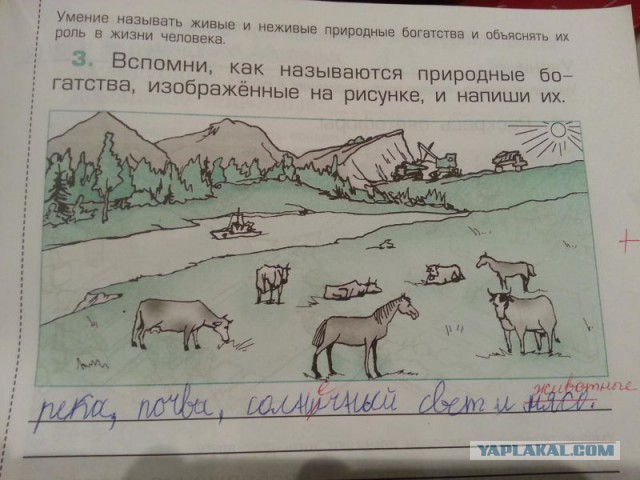 Умение называть живые и неживые природные богатства и объяснять их
роль в жизни человека.
3. Вспомни, как называются природные бо-
гатства, изображённые на рисунке, и напиши их.
+
е животные
река, почва, солнчный свет и мясо.
YAPLAKAL.COM